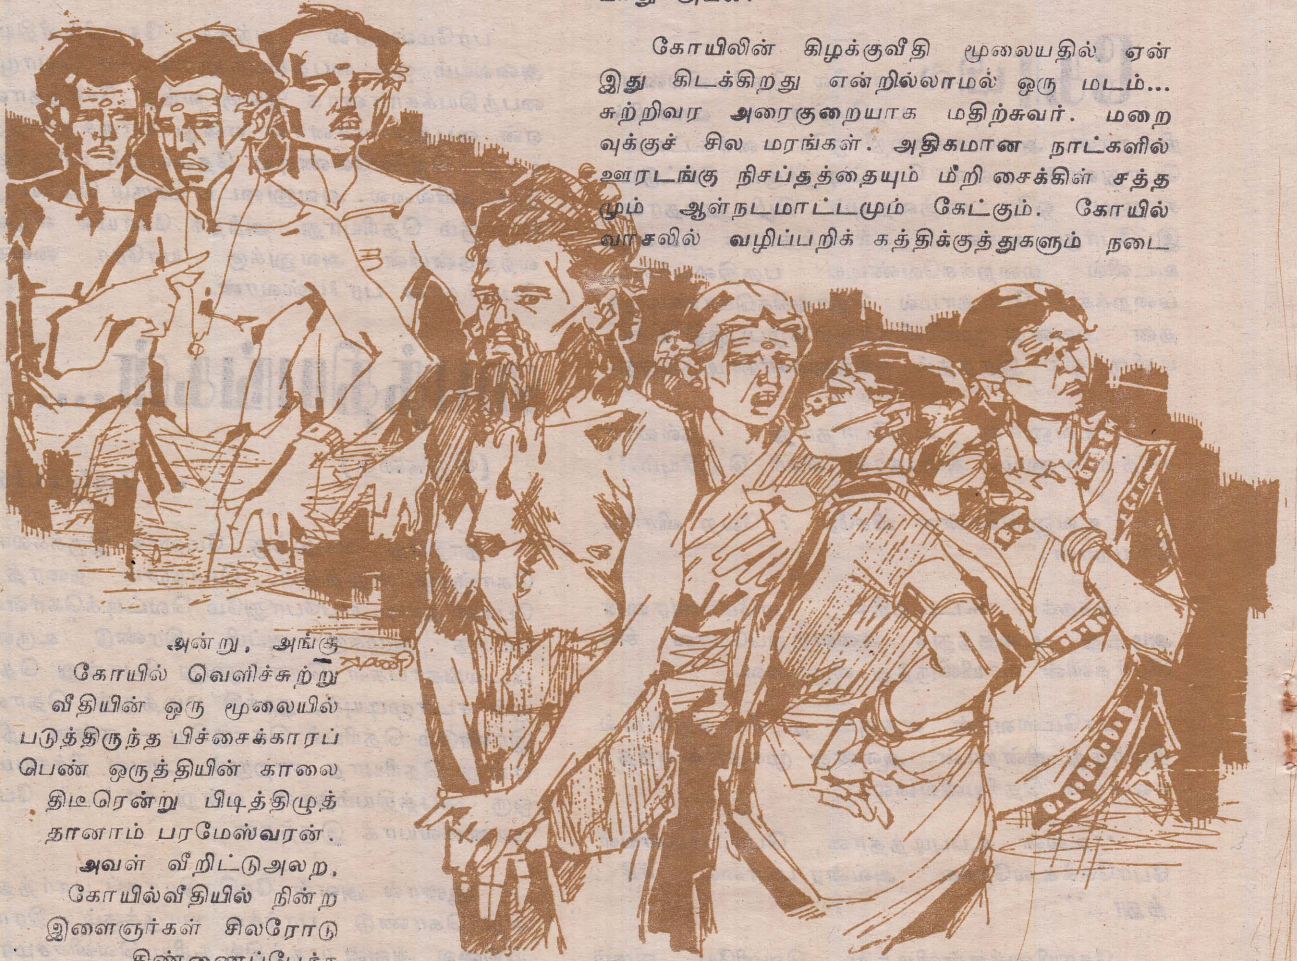 கோயிலின் கிழக்குவீதி மூலையதில் ஏன்
இது கிடக்கிறது என்றில்லாமல் ஒரு மடம்...
சுற்றிவர அரைகுறையாக மதிற்சுவர். மறை
வுக்குச் சில மரங்கள். அதிகமான நாட்களில்
ஊரடங்கு நிசப்தத்தையும் மீறி சைக்கிள் சத்த
மும் ஆள்நடமாட்டமும் கேட்கும். கோயில்
வாசலில் வழிப்பறிக் கத்திக்குத்துகளும் நடை
அன்று, அங்கு
கோயில் வெளிச்சுற்று
வீதியின் ஒரு மூலையில்
படுத்திருந்த பிச்சைக்காரப்
பெண் ஒருத்தியின் காலை
திடீரென்று பிடித்திழுத்
தானாம் பரமேஸ்வரன்.
அவள் வீறிட்டுஅலற,
கோயில்வீதியில் நின்ற
இளைஞர்கள் சிலரோடு